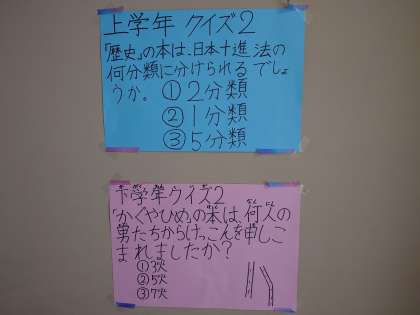 上学年 クイズ2
「歴史」の本は、日本十進法の
何分類に分けられるでしょ
うか。 ①2分類
②1分類
③5分類
下学年クイズ2
「かぐやひめ」の本は、何人の
男たちからけっこんを申しこ
まれましたか?
①3人
②5人
③7人